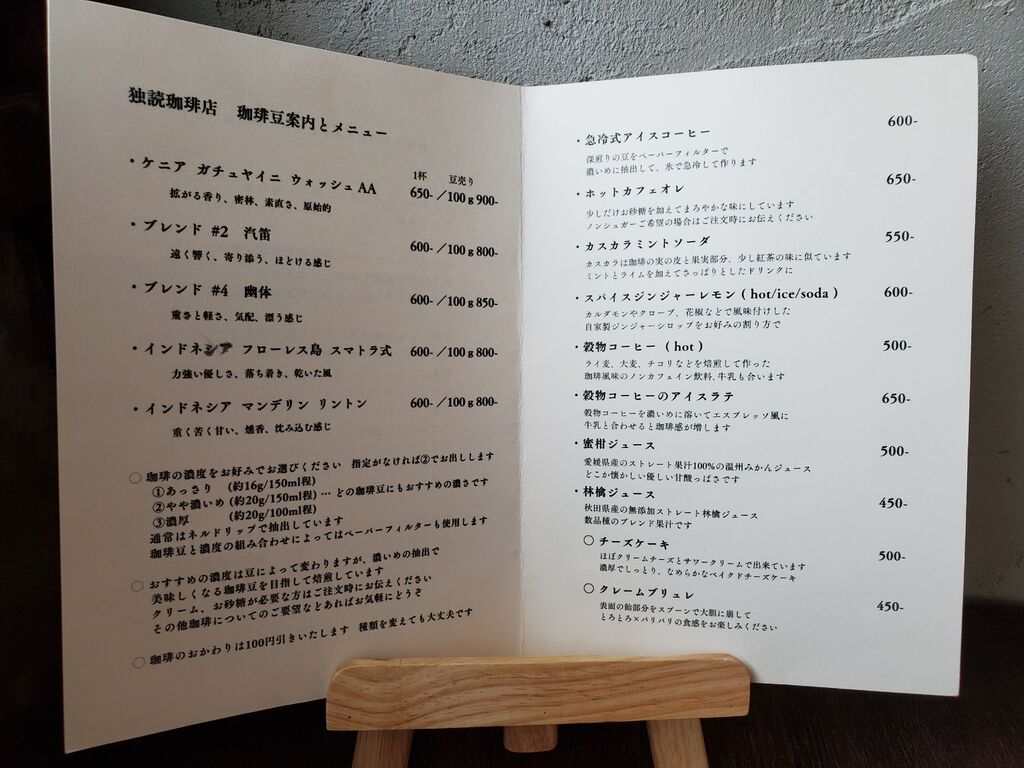 独読珈琲店 珈琲豆案内とメニュー
1杯 豆売り
・ケニア ガチュヤイニ ウォッシュAA 650-／100g 900-
拡がる香り、密林、素直さ、原始的
・ブレンド #2 汽笛 600-／100g 800-
遠く響く、寄り添う、ほどける感じ
・ブレンド #4 幽体 600-／100g 850-
重さと軽さ、気配、漂う感じ
・インドネシア フローレス島 スマトラ式 600-／100g 800-
力強い優しさ、落ち着き、乾いた風
・インドネシア マンデリン リントン 600-／100g 800-
重く苦く甘い、燻香、沈み込む感じ
○ 珈琲の濃度をお好みでお選びください 指定がなければ②でお出しします
①あっさり (約16g/150ml程)
②やや濃いめ (約20g/150ml程) … どの珈琲豆にもおすすめの濃さです
③濃厚 (約20g/100ml程)
通常はネルドリップで抽出しています
珈琲豆と濃度の組み合わせによってはペーパーフィルターも使用します
○ おすすめの濃度は豆によって変わりますが、濃いめの抽出で
美味しくなる珈琲豆を目指して焙煎しています
クリーム、お砂糖が必要な方はご注文時にお伝えください
その他珈琲についてのご要望などあればお気軽にどうぞ
○ 珈琲のおかわりは100円引きいたします 種類を変えても大丈夫です
・急冷式アイスコーヒー 600-
深煎りの豆をペーパーフィルターで
濃いめに抽出して、氷で急冷して作ります
・ホットカフェオレ 650-
少しだけお砂糖を加えてまろやかな味にしています
ノンシュガーご希望の場合はご注文時にお伝えください
・カスカラミントソーダ 550-
カスカラは珈琲の実の皮と果実部分、少し紅茶の味に似ています
ミントとライムを加えてさっぱりとしたドリンクに
・スパイスジンジャーレモン ( hot/ice/soda ) 600-
カルダモンやクローブ、花椒などで風味付けした
自家製ジンジャーシロップをお好みの割り方で
・穀物コーヒー ( hot ) 500-
ライ麦、大麦、チコリなどを焙煎して作った
珈琲風味のノンカフェイン飲料、牛乳も合います
・穀物コーヒーのアイスラテ 650-
穀物コーヒーを濃いめに溶いてエスプレッソ風に
牛乳と合わせると珈琲感が増します
・蜜柑ジュース 500-
愛媛県産のストレート果汁100%の温州みかんジュース
どこか懐かしい優しい甘酸っぱさです
・林檎ジュース 450-
秋田県産の無添加ストレート林檎ジュース
数品種のブレンド果汁です
○ チーズケーキ 500-
ほぼクリームチーズとサワークリームで出来ています
濃厚でしっとり、なめらかなベイクドチーズケーキ
○ クレームブリュレ 450-
表面の飴部分をスプーンで大胆に崩して
とろとろ×パリパリの食感をお楽しみください